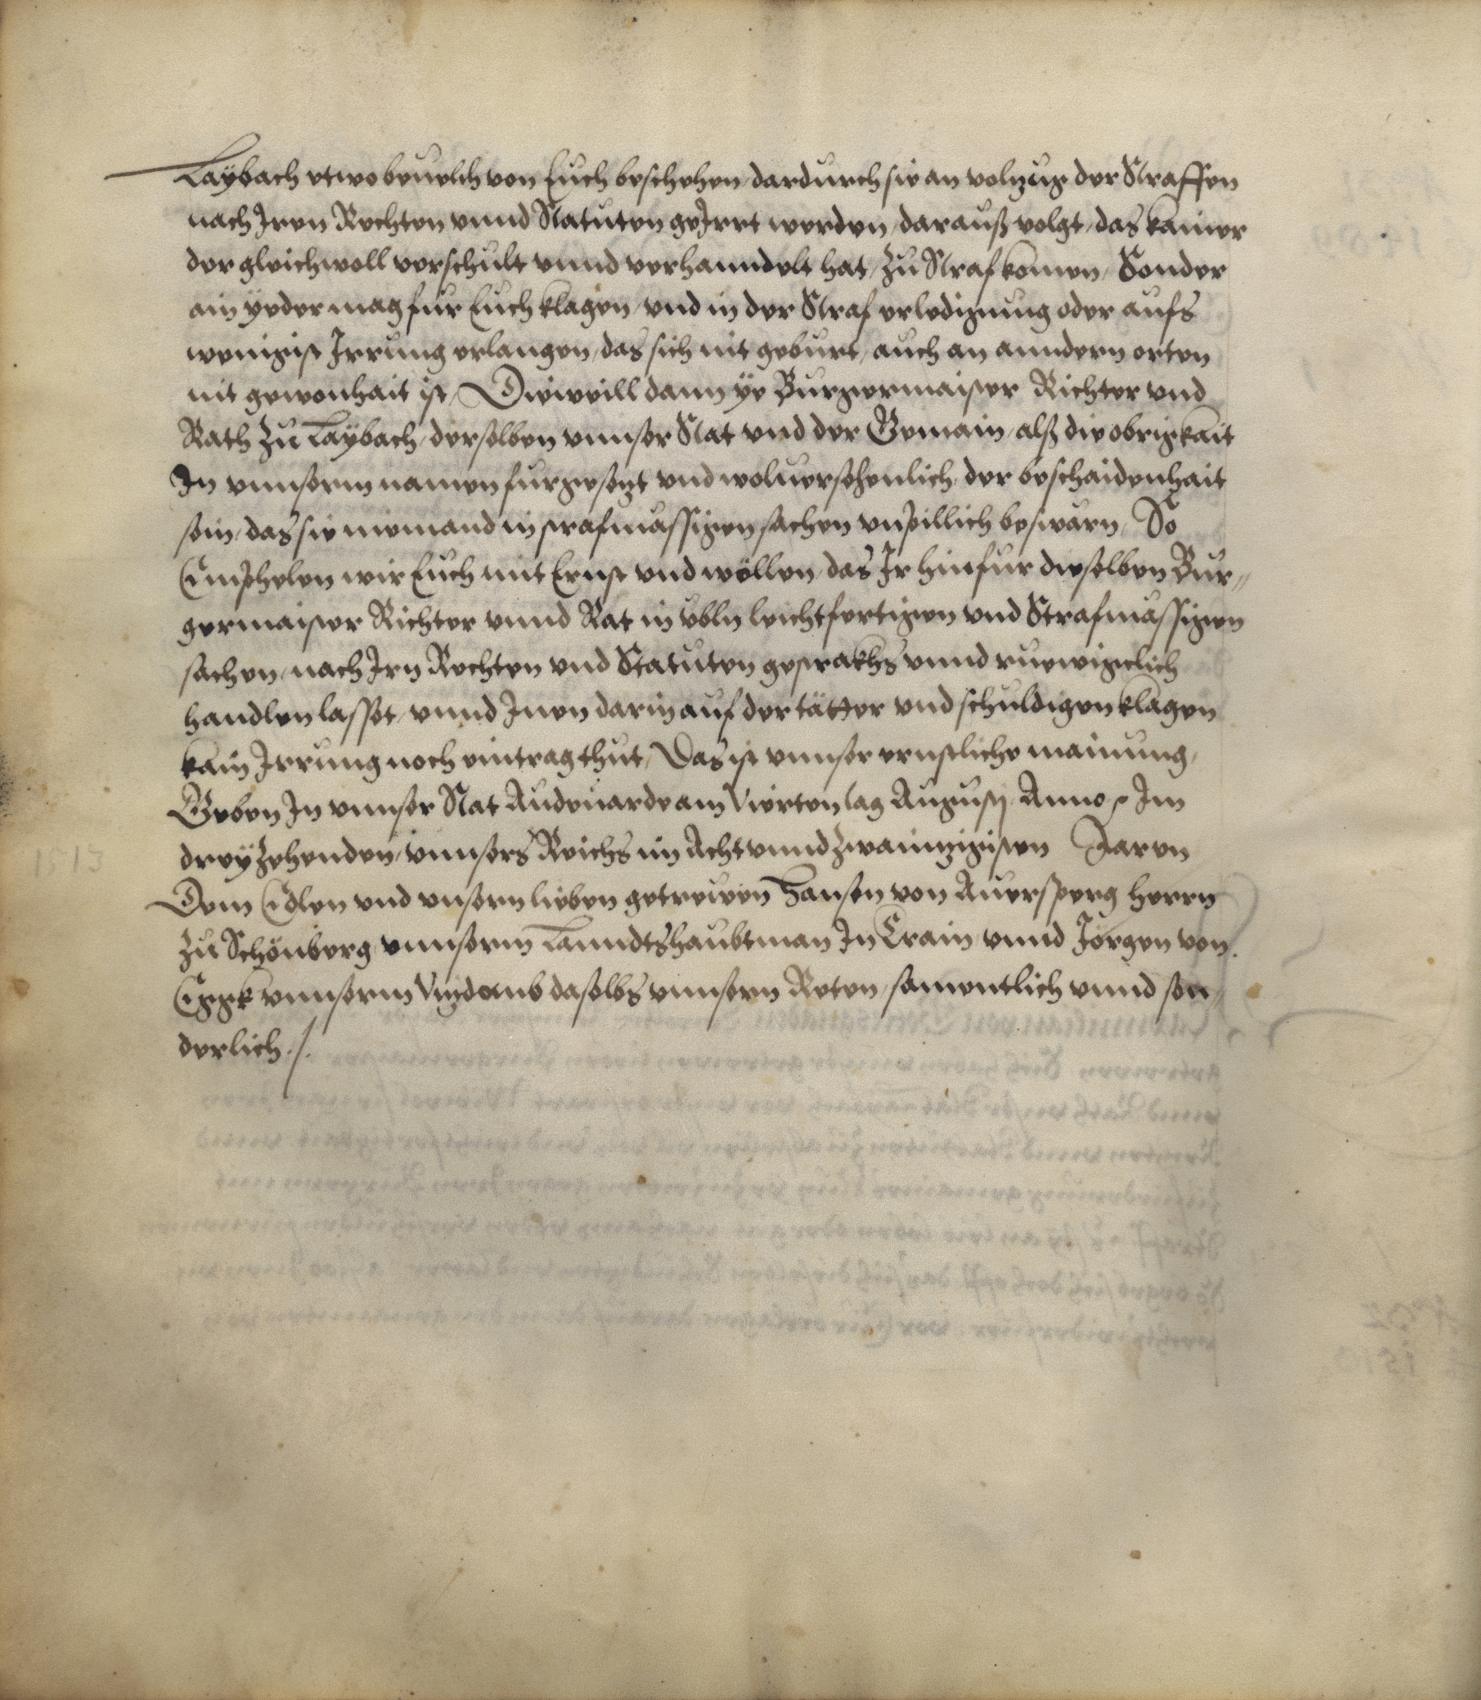 Laÿbach etwo beuelch von Euch beschehen, dardurch sie an volzug der Straffen
nach Iren Rechten vnnd Statuten geIrrt werden, darauß volgt, das kainer
der gleichwoll verschult vnnd verhanndelt hat, zu Straf komen, Sonder
ain yeder mag fur Euch klagen, vnd in der Straf erledigung oder aufs
wenigist Irrung erlangen, das sich nit geburt, auch an anndern orten
nit gewonhait ist, Dieweill dann ye Burgermaister Richter vnd
Rath zu Laÿbach, derselben vnnser Stat vnd der Gemain, alß die obrigkait
In vnnserm namen furgesezt vnd woluersehenlich der beschaidenhait
sein, das sie niemand in strafmässigen sachen vnpillich beswärn, So
Emphelen wir Euch mit Ernst vnd wöllen, das Ir hinfur dieselben Bur„
germaister Richter vnnd Rat in vbln leichtfertigen vnd Strafmässigen
sachen, nach Irn Rechten vnd Statuten gestrakhs vnnd ruewigelich
handlen lasset, vnnd Inen darin auf der tätter vnd schuldigen klagen
kain Irrung noch eintrag thut, Das ist vnnser ernstliche mainung,
Geben In vnnser Stat Audenarde am Vierten tag Augusti Anno Im
dreyzehenden, vnnsers Reichs im Acht vnnd zwainzigisten Jaren
Dem Edlen vnd vnsern lieben getrewen Hansen von Aursperg Herrn
zu Schönberg vnnserm Lanndtshaubtman In Crain vnnd Jörgen von
Eggk vnnserm Vizdomb daselbs vnnsern Reten, samentlich vnnd son„
derlich./.
1513